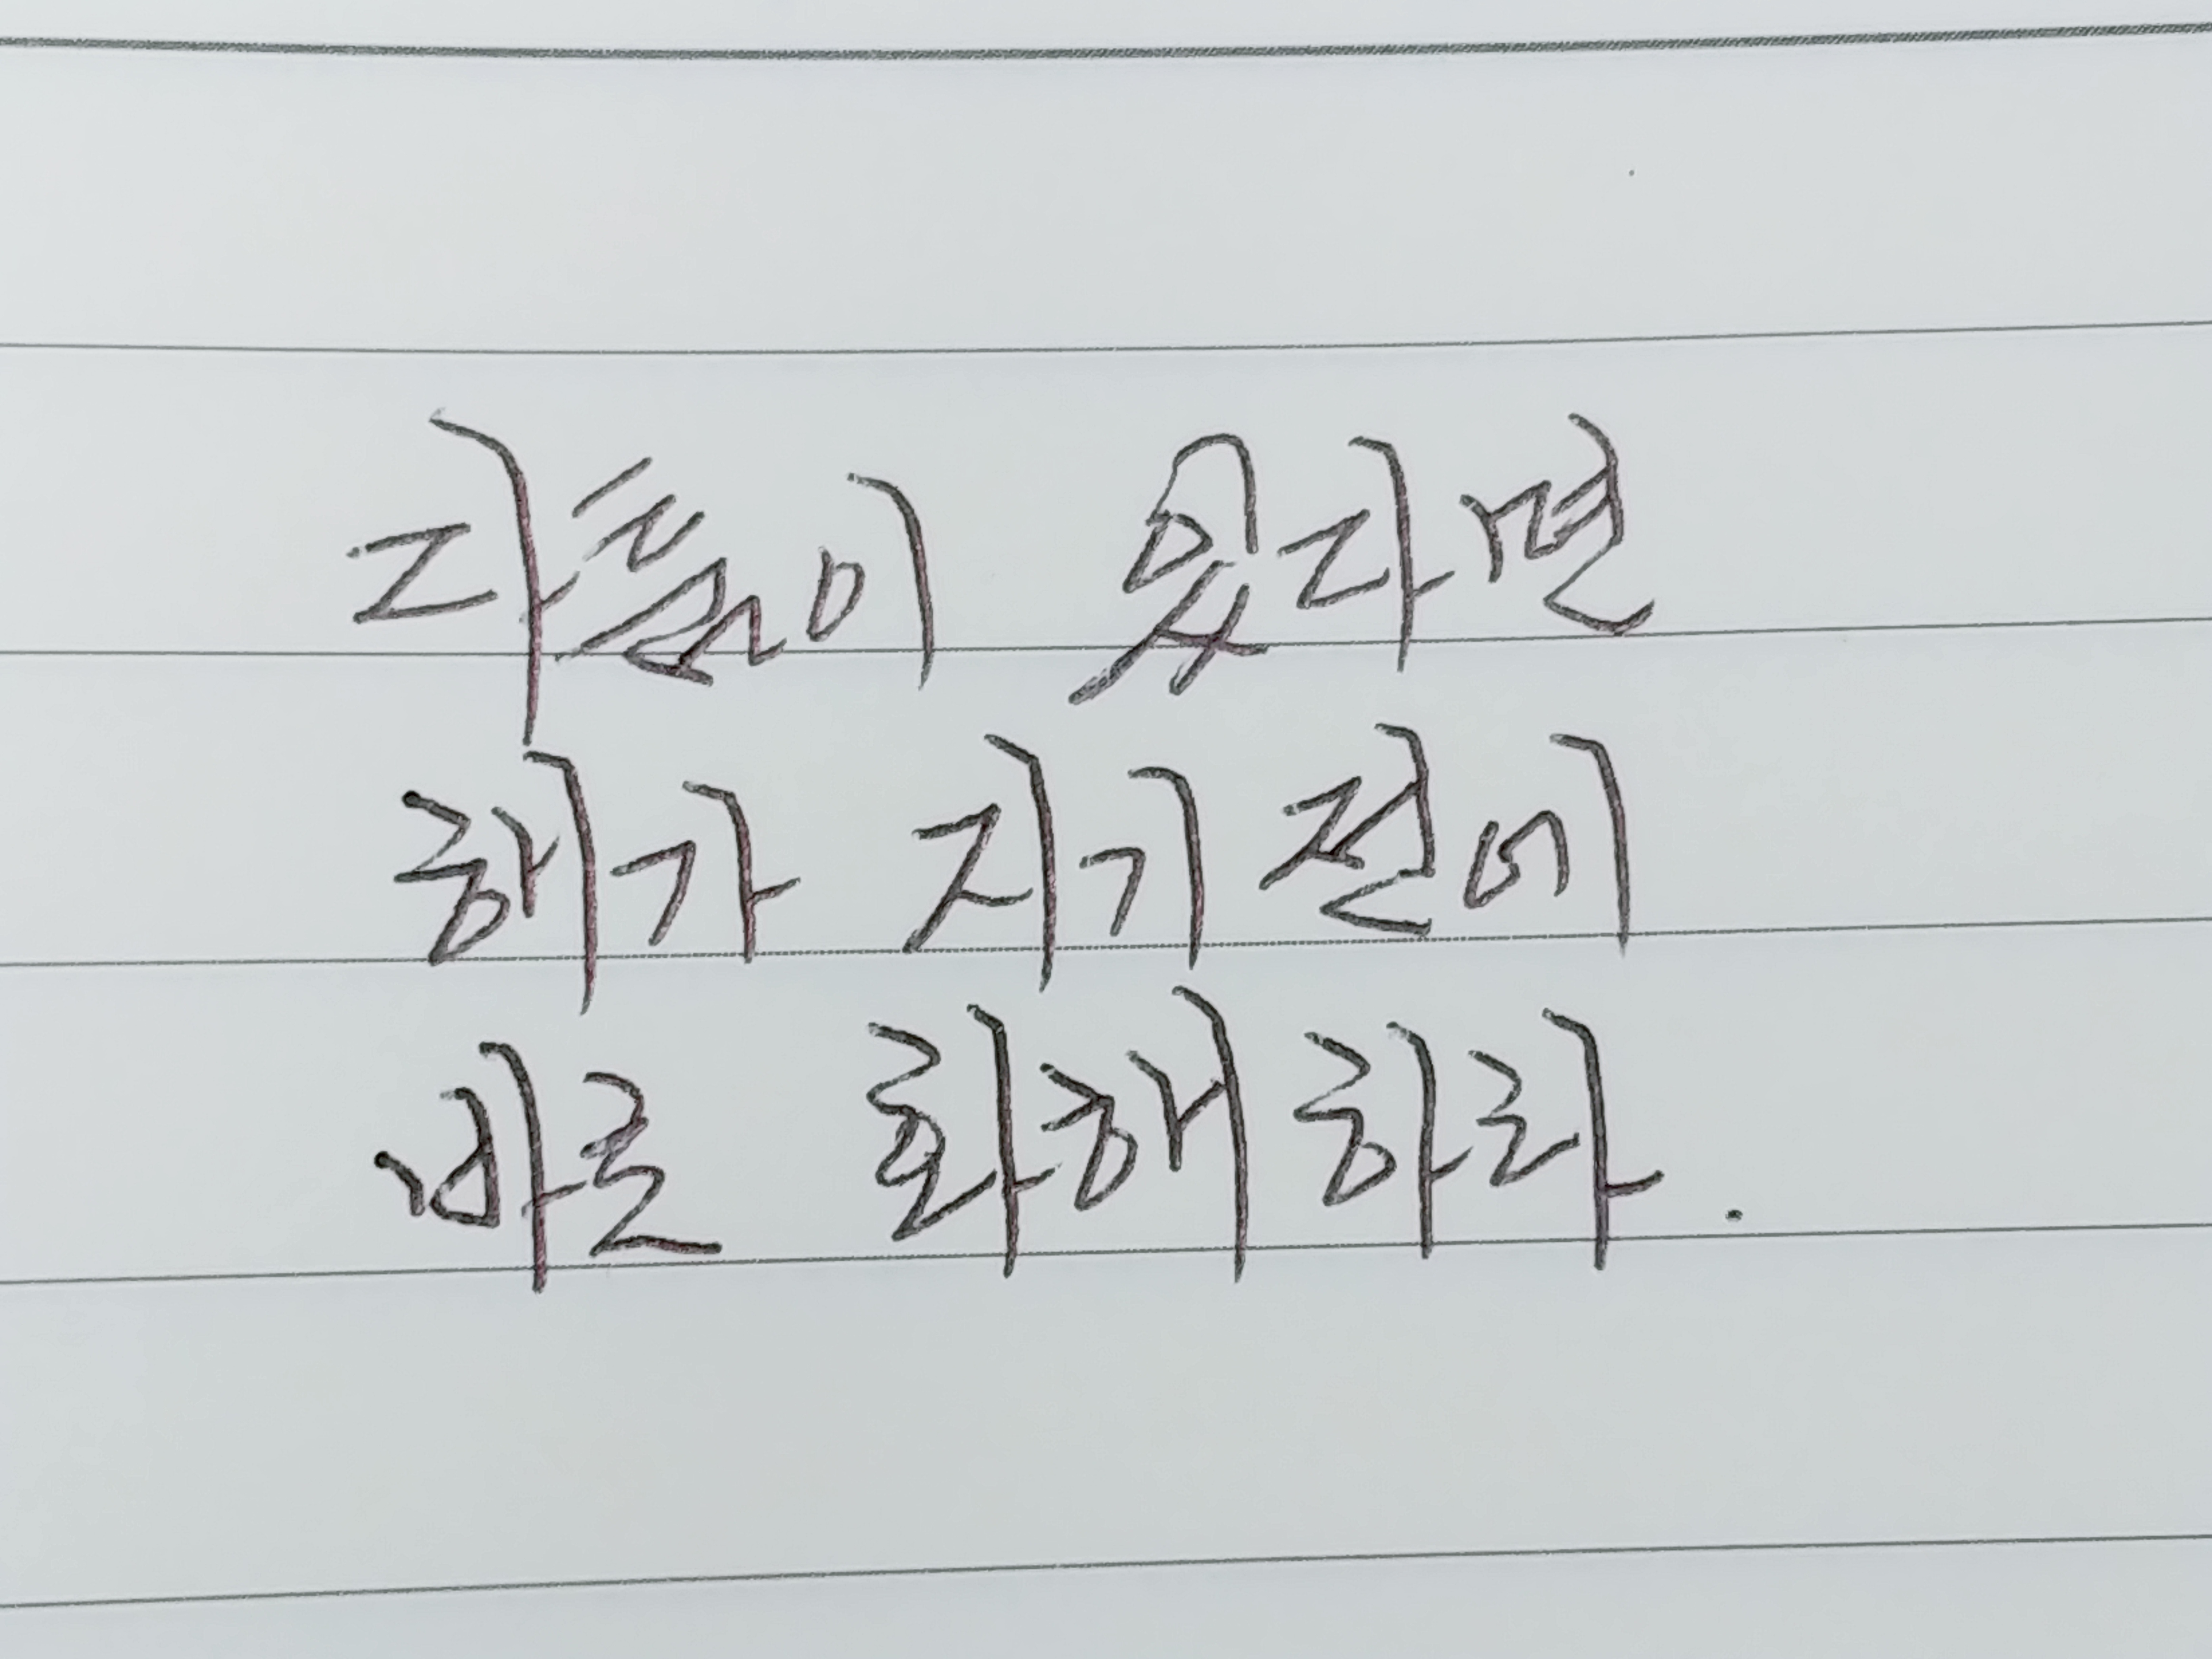 다툼이 있다면
해가 지기 전에
바로 화해하라.